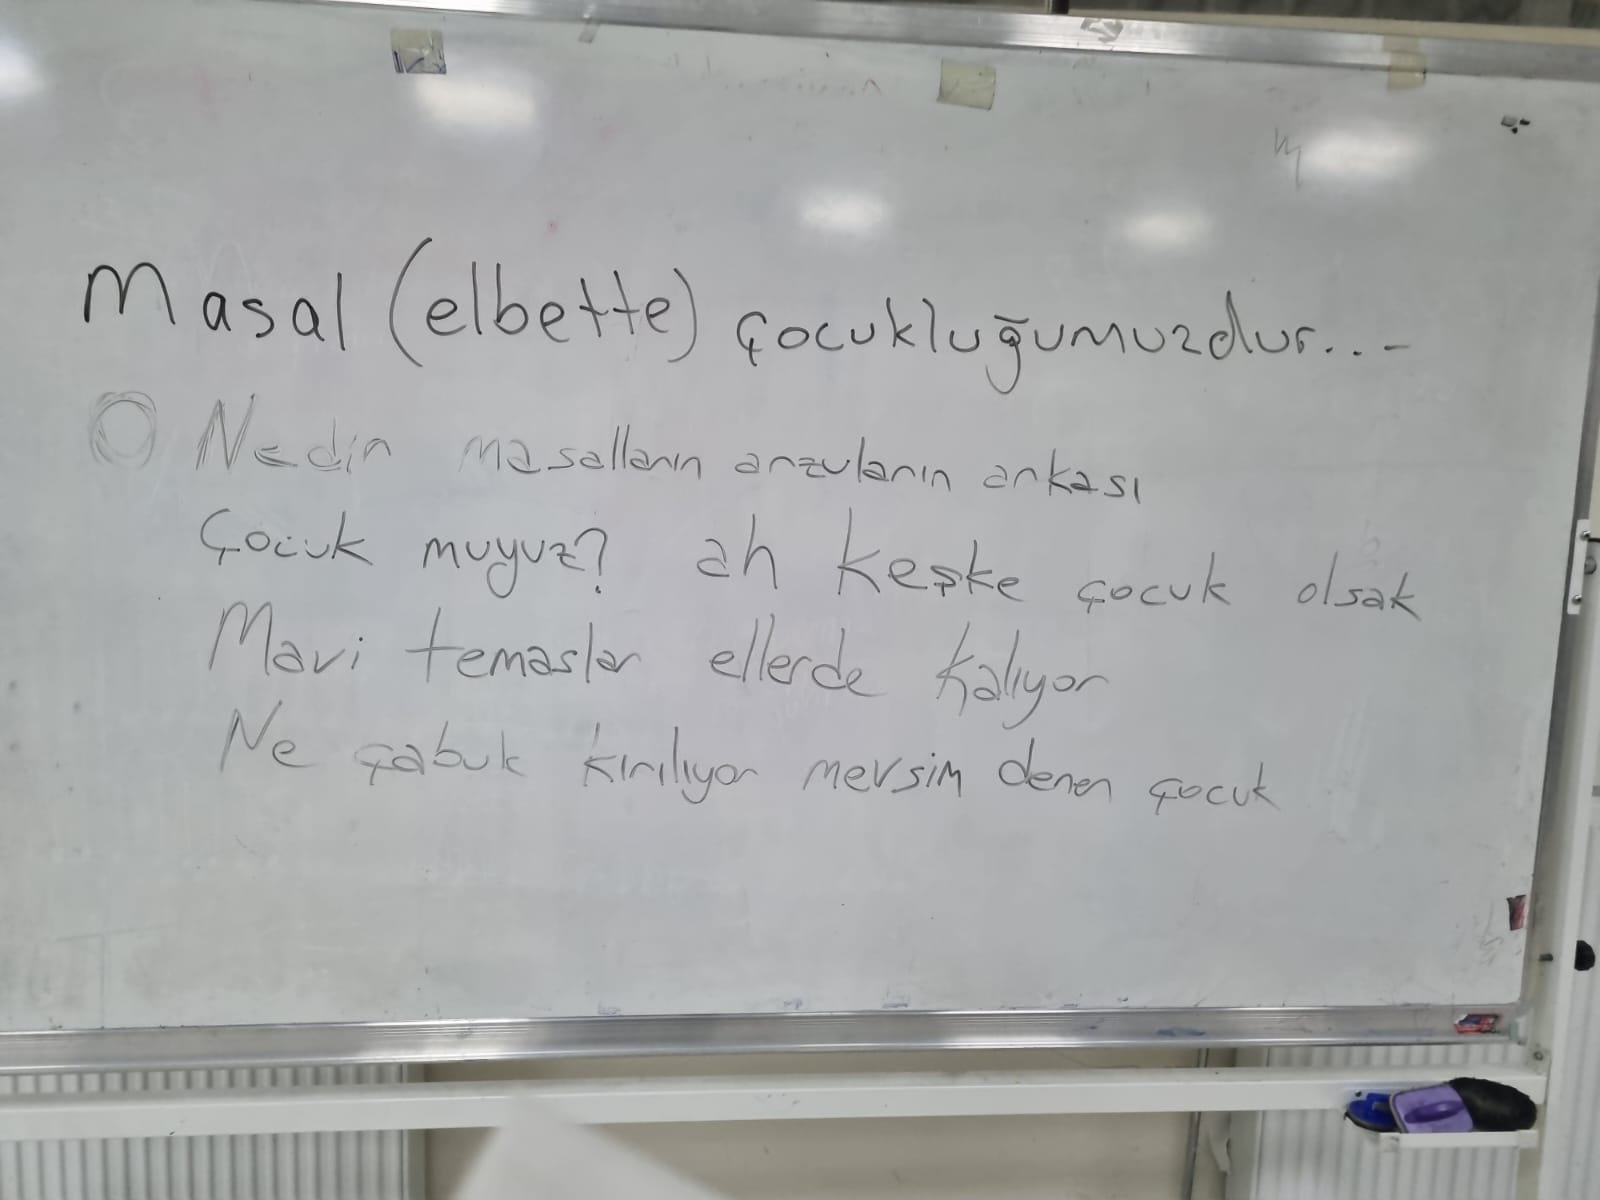 Masal (elbette) çocukluğumuzdur...
Nedir masalların arzuların arkası
Çocuk muyuz? ah keşke çocuk olsak
Mavi temaslar ellerde kalıyor
Ne çabuk kırılıyor mevsim denen çocuk